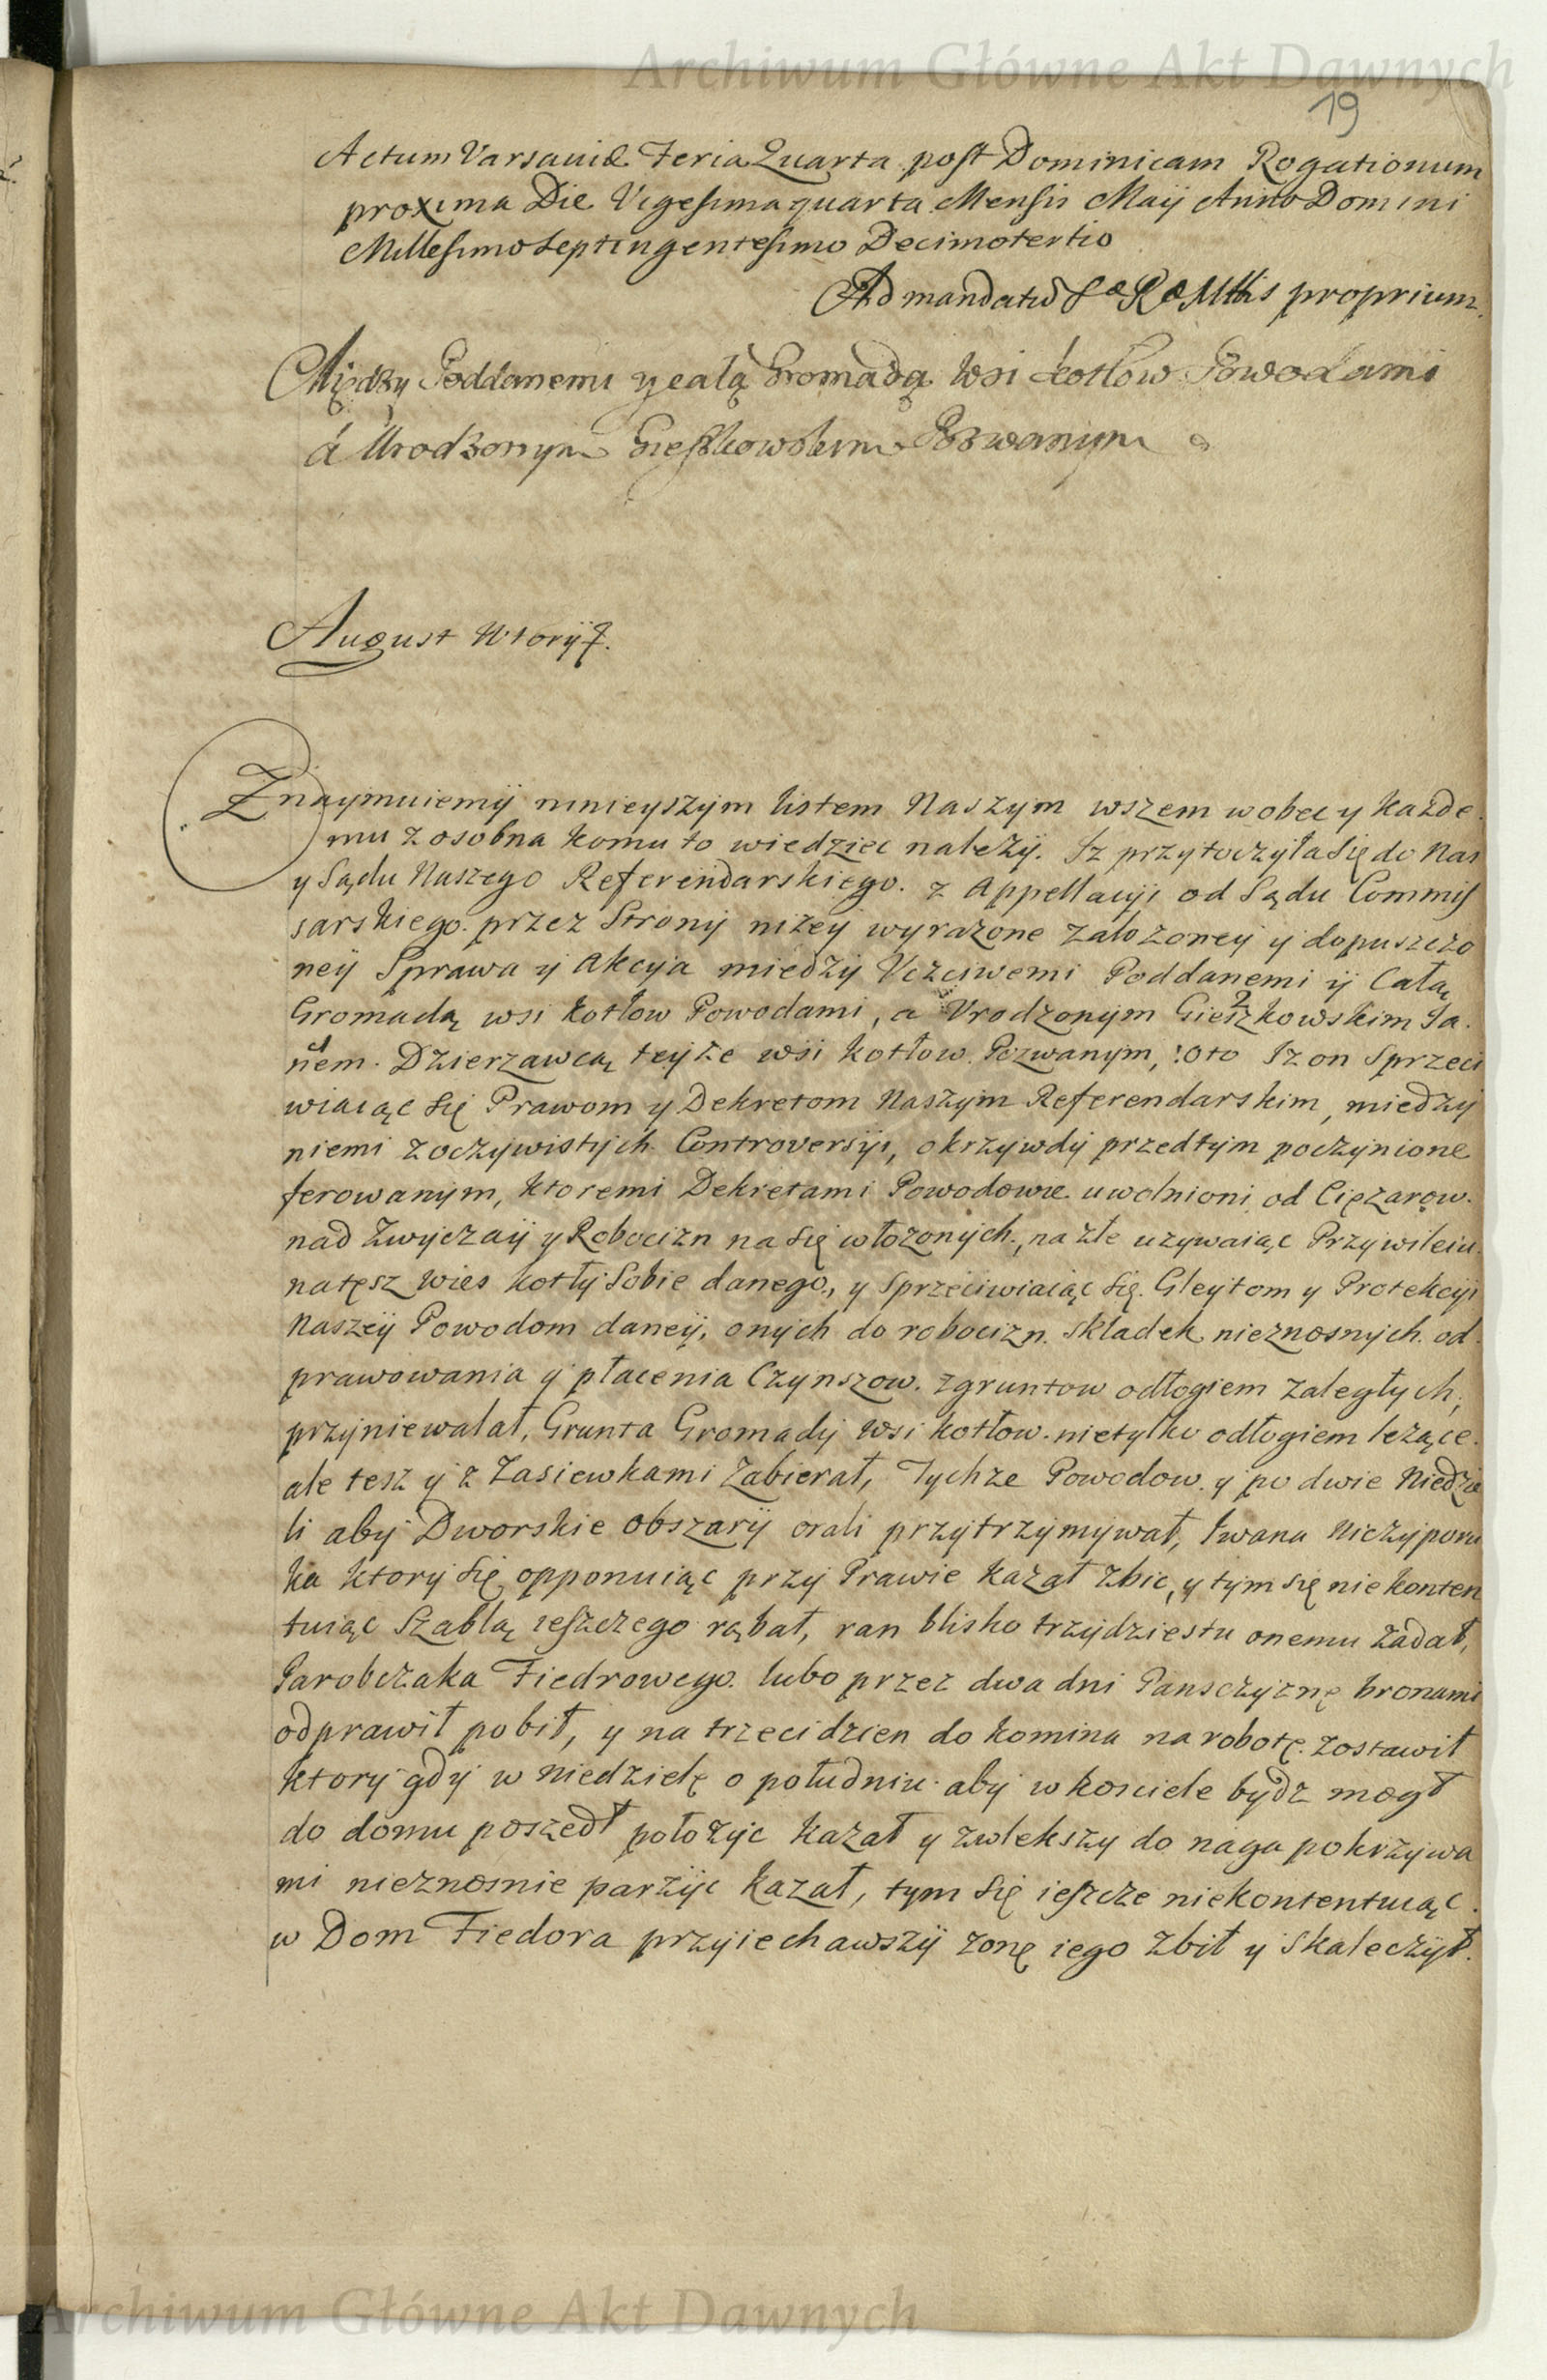 Archiwum Główne Akt Dawnych
19
Actum Varsaviæ Feria Quarta post Dominicam Rogationum
proxima Die Vigesima quarta Mensis Maÿ Anno Domini
Millesimo Septingentesimo Decimotertio
Ad mandatū S æ R æ Mttis proprium.
Między Poddanemi y całą Gromadą Wsi Kotłow Powodami
á Urodzonym Gieszkowskim Pozwanym
August Wtorÿ
Znaymuiemÿ ninieyszÿm listem Naszÿm wszem wobec y każde
mu z osobna komu to wiedziec należÿ. Iz przÿtoczÿła się do Nas
y Sądu Naszego Referendarskiego. z Appellacÿi od Sądu Commis
sarskiego. przez Stronÿ niżeÿ wyrażone założoneÿ ÿ dopuszczo
neÿ Sprawa ÿ Akcÿia miedzÿ Uczciwemi Poddanemi ÿ Całą
Gromadą wsi Kotłow Powodami, a Urodzonÿm Gieszkowskim Ja.
nem. Dzierzawcą teÿże wsi Kotłow. Pozwanÿm, :oto Iz on Sprzeci
wiaiąc się Prawom y Dekretom Naszÿm Referendarskim, miedzÿ
niemi z oczÿwistÿch. Controversÿi, o krzÿwdÿ przedtÿm poczÿnione
ferowanÿm, ktoremi Dekretami Powodowie uwolnioni od Ciężarow.
nad zwÿczaÿ y Robocizn na się włożonÿch., na złe uzÿwaiąc Przÿwileiu.
na tęsz wies Kotłÿ Sobie danego., y Sprzeciwiaiąc się. Gleÿtom y Protekcÿi
Naszeÿ Powodom daneÿ, onÿch do robocizn. składek nieznosnÿch. od
prawowania ÿ płacenia Czÿnszow. z gruntow odłogiem zaległÿch,
przÿniewalał, Grunta Gromadÿ Wsi Kotłow. nietÿlko odłogiem leżące.
ale tesz ÿ z Zasiewkami zabierał, Tÿchże Powodow. ÿ po dwie Niedzie
li abÿ Dworskie obszarÿ orali przÿtrzÿmÿwał, Iwana Niczÿporu
ka ktorÿ się opponuiąc przÿ Prawie kazał zbic, y tÿm się nie konten
tuiąc Szablą ieszcze go rąbał, ran blisko trzÿdziestu onemu zadał,
Parobczaka Fiedrowego. lubo przez dwa dni Panszczÿznę bronami
odprawił pobił, y na trzeci dzien do komina na robotę. zostawił
ktorÿ gdÿ w niedzielę o południu abÿ w kosciele bÿdz mogł
do domu poszedł położÿc kazał y zwlekszy do naga pokrzÿwa
mi nieznosnie parzÿc kazał, tÿm się ieszcze niekontentuiąc.
w Dom Fiedora przÿiechawszÿ zonę iego zbił ÿ skaleczÿł.
Archiwum Główne Akt Dawnych